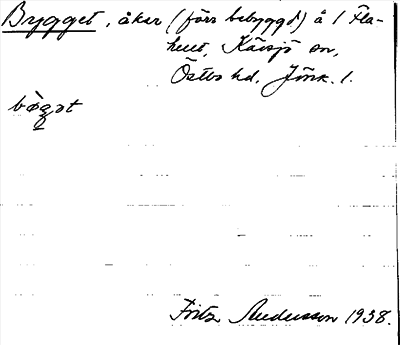 Bygget, åker (förr bebyggd) å 1 Fla-
hult, Kävsjö sn,
Östbo hd, Jönk. l.
bø̀gət
Fritz Andersson 1938.